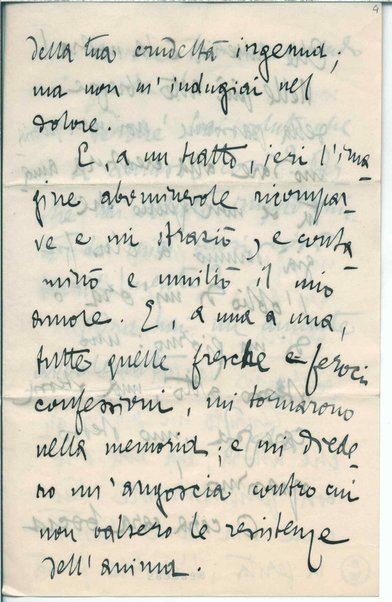 della tua crudeltà ingenua;
ma non m'indugiai nel
dolore.
E, a un tratto, jeri l'ima
gine abominevole ricompar-
ve e mi straziò, e conta
minò e umiliò il mio
amore. E, a una a una,
tutte quelle fresche e feroci
confessioni, mi tornarono
nella memoria; e mi diede
ro un'angoscia contro cui
non valsero le resistenze
dell'anima.